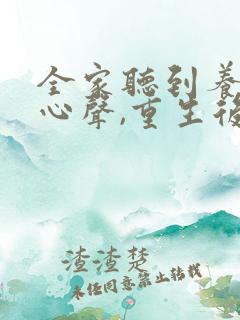 全家聽到養
心聲,重生後
渣渣楚
未經同意禁止轉載